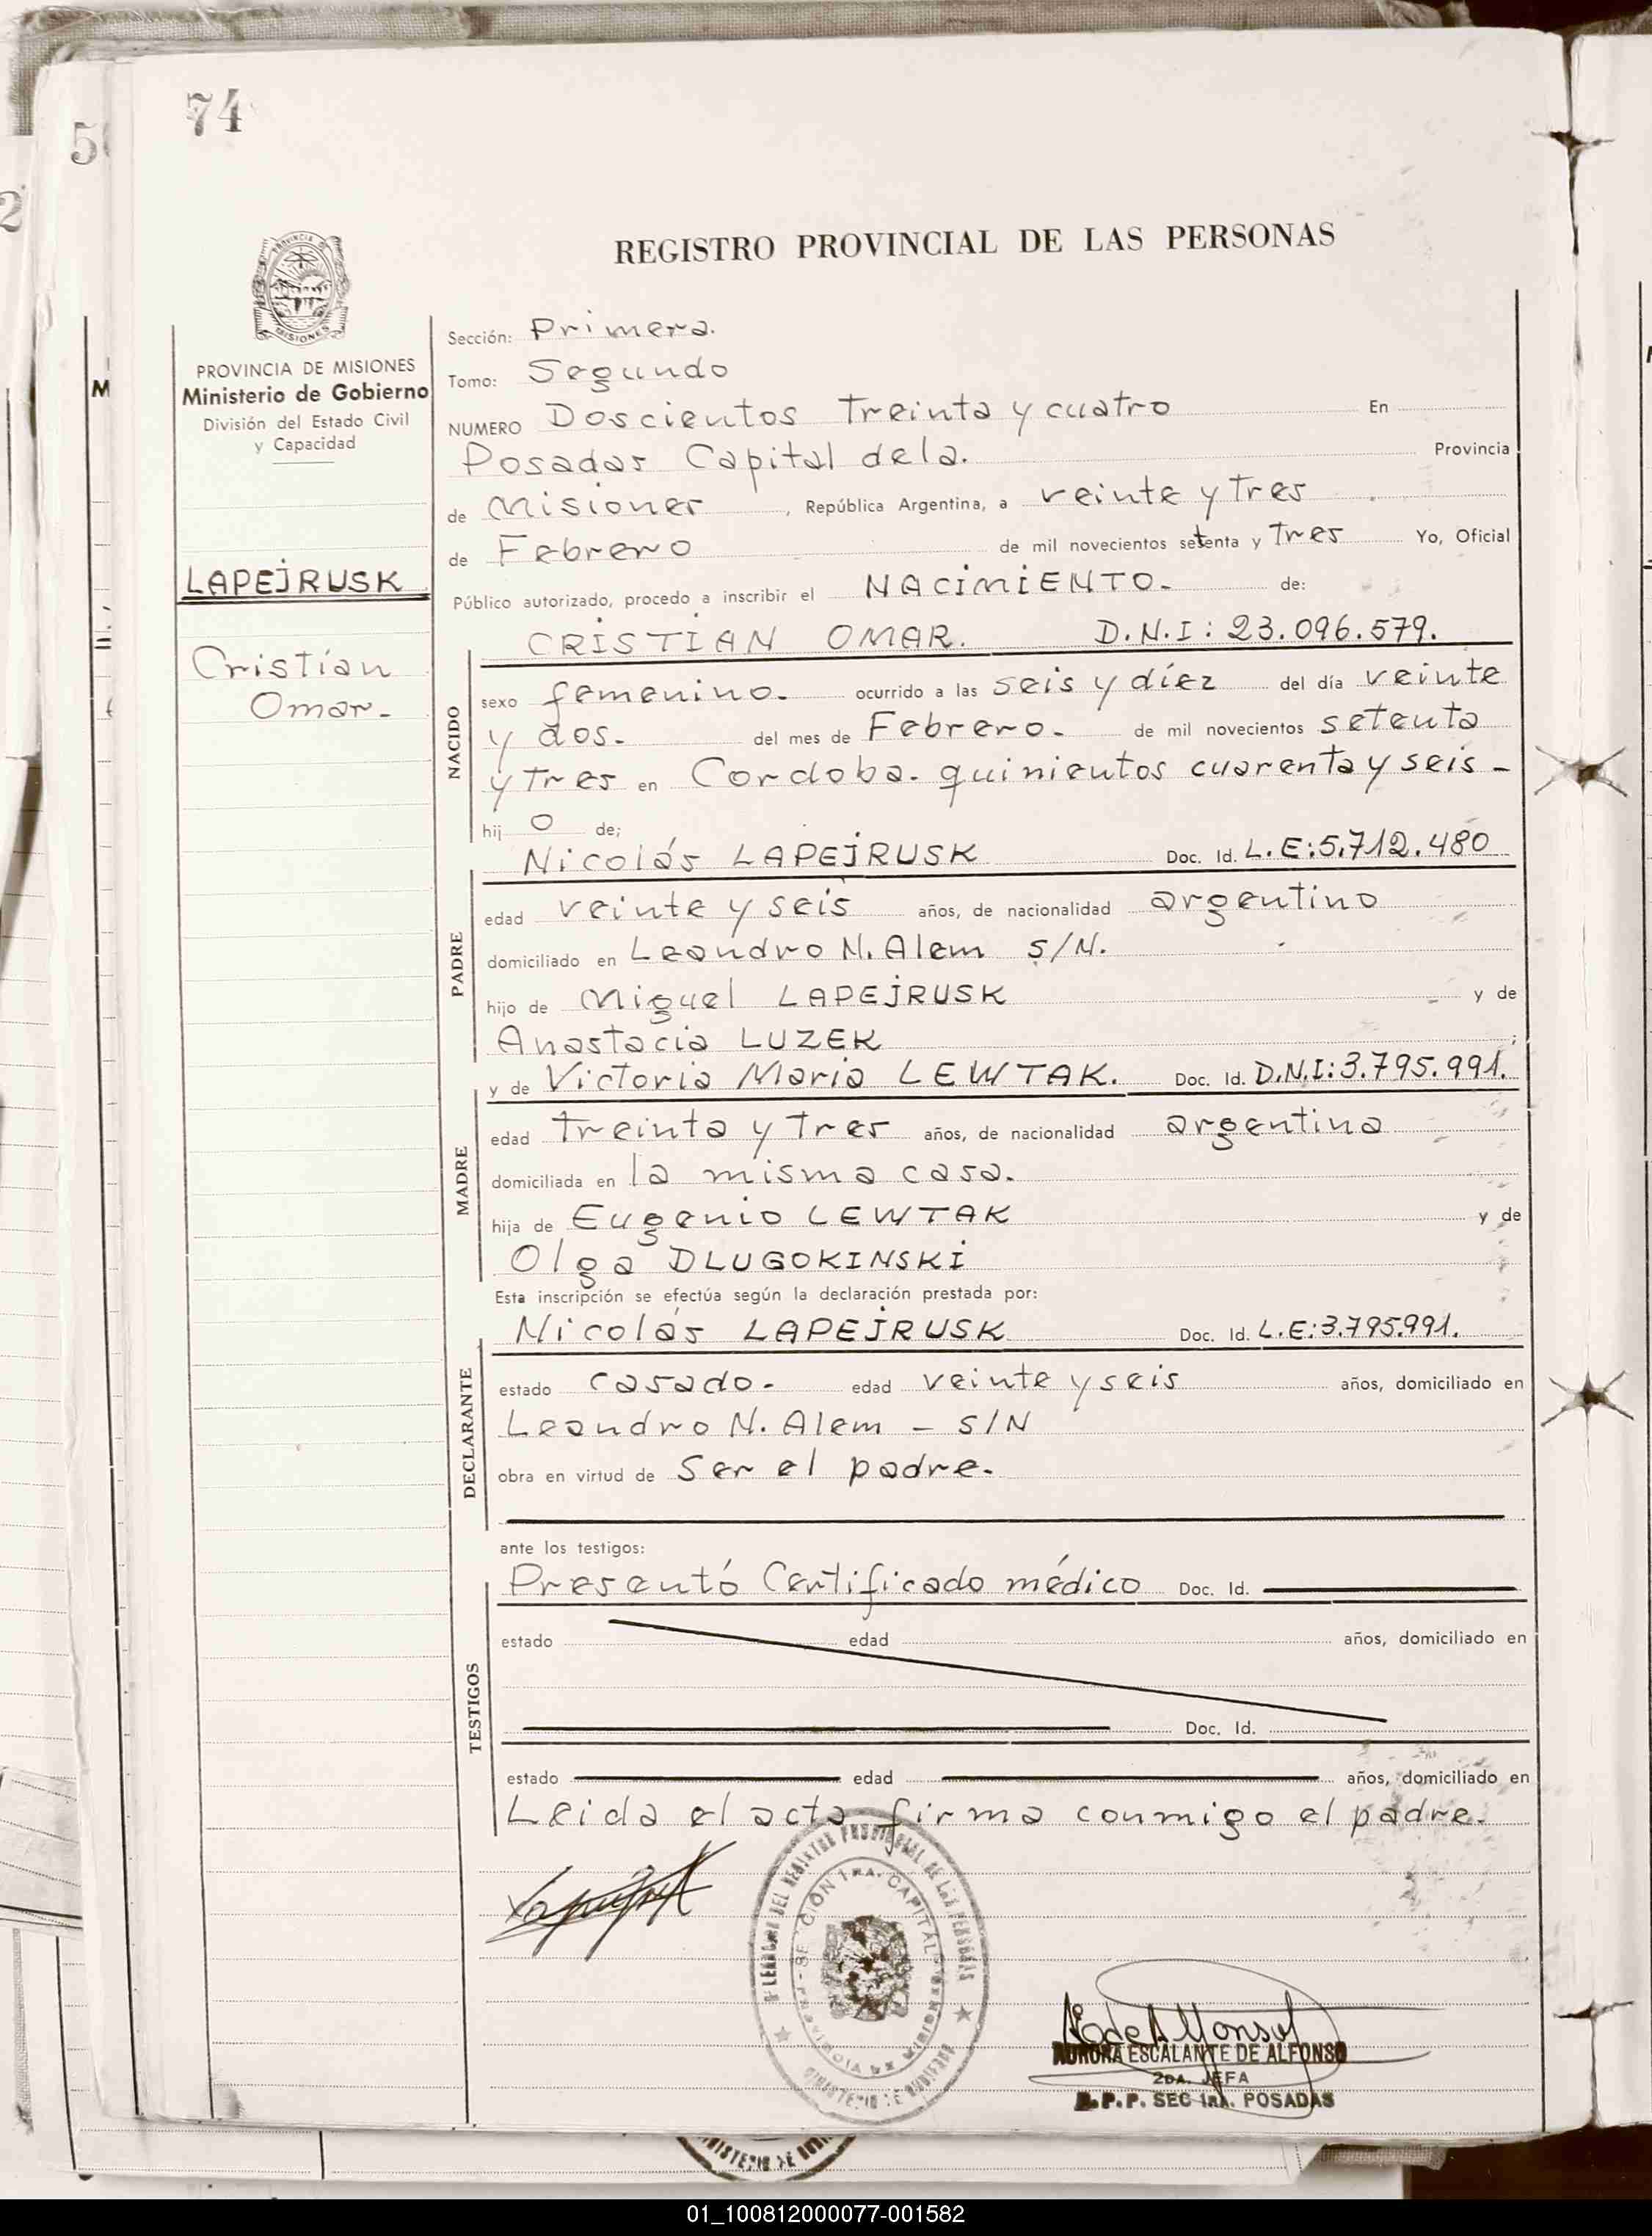 74
5
2
REGISTRO PROVINCIAL DE LAS PERSONAS
PROVINCIA DE MISIONES
Ministerio de Gobierno
División del Estado Civil
y Capacidad
LAPEJRUSK
Cristian
Omar-
Sección: Primera.
Tomo: Segundo
NUMERO Doscientos Treinta y cuatro En
Posadas Capital de la. Provincia
de Misiones, República Argentina, a veinte y Tres
de Febrero de mil novecientos setenta y Tres Yo, Oficial
Público autorizado, procedo a inscribir el NACIMIENTO- de:
CRISTIAN OMAR. D.N.I: 23.096.579.
NACIDO
sexo femenino.- ocurrido a las seis y díez del día veinte
y dos.- del mes de Febrero.- de mil novecientos setenta
y Tres en Cordoba. quinientos cuarenta y seis-
hij o de;
Nicolás LAPEJRUSK Doc. Id. L.E:5.712.480
PADRE
edad veinte y seis años, de nacionalidad argentino
domiciliado en Leandro N. Alem S/N.
hijo de Miguel LAPEJRUSK y de
Anastacia LUZEK ;
y de Victoria Maria LEWTAK. Doc. Id. D.N.I:3.795.991.
MADRE
edad Treinta y Tres años, de nacionalidad argentina
domiciliada en la misma casa.
hija de Eugenio LEWTAK y de
Olga DLUGOKINSKI
Esta inscripción se efectúa según la declaración prestada por:
Nicolás LAPEJRUSK Doc. Id. L.E:3.795.991.
DECLARANTE
estado casado.- edad veinte y seis años, domiciliado en
Leandro N. Alem - S/N
obra en virtud de Ser el padre.
ante los testigos:
Presentó Certificado médico Doc. Id.
TESTIGOS
estado edad años, domiciliado en
Doc. Id.
estado edad años, domiciliado en
Leida el acta firma conmigo el padre.
AURORA ESCALANTE DE ALFONSO
2DA. JEFA
R.P.P. SEC 1RA. POSADAS
01_100812000077-001582